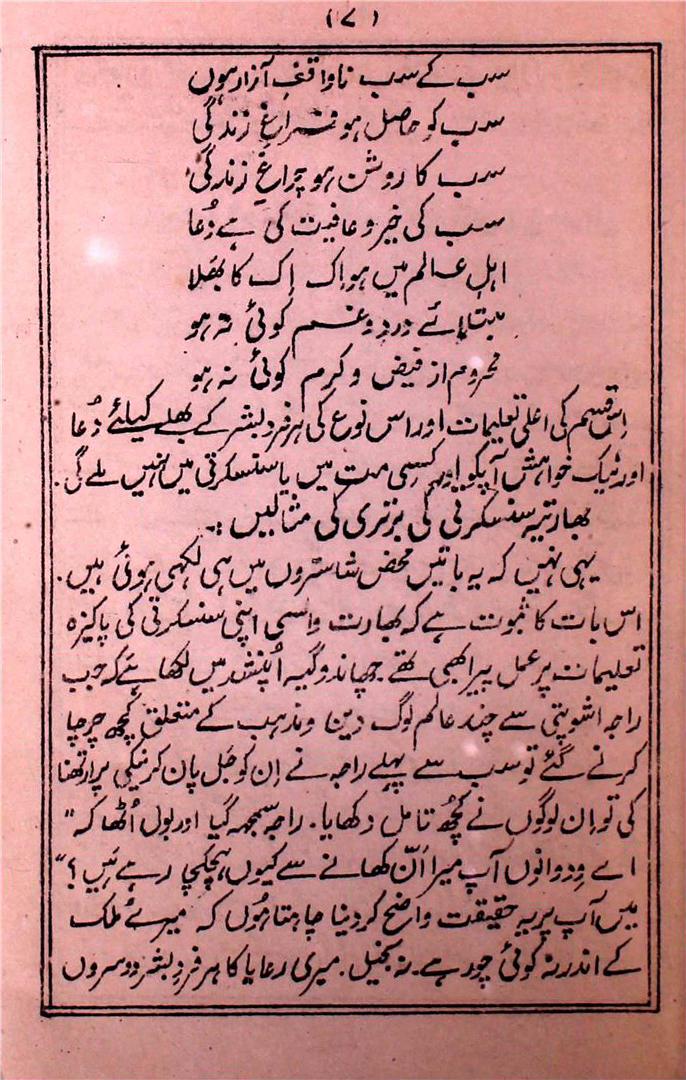 (۷)
سب کے سب ناواقفِ آزار ہوں
سب کو حاصل ہو فراغِ زندگی
سب کا روشن ہو چراغِ زندگی
سب کی خیر و عافیت کی ہے دُعا
اہلِ عالم میں ہو اِک اِک کا بھَلا
مبتلائے درد و غم کوئی نہ ہو
محروم از فیض و کرم کوئی نہ ہو
اِس قسم کی اعلیٰ تعلیمات اور اس نوع کی ہر فردِ بشر کے بھلے کیلئے دُعا
اور نیک خواہش آپکو اور کسی مت میں یا سنسکرتی میں نہیں ملے گی۔
بھارتیہ سنسکرتی کی برتری کی مثالیں :۔
یہی نہیں کہ یہ باتیں محض شاستروں میں ہی لکھی ہوئی ہیں۔
اس بات کا ثبوت ہے کہ بھارت واسی اپنی سنسکرتی کی پاکیزہ
تعلیمات پر عمل پیرا بھی تھے۔ چھاندوگیہ اُپنشد میں لکھا ہے کہ جب
راجہ اشوپتی سے چند عالم لوگ دین و مذہب کے متعلق کچھ چرچا
کرنے گئے تو سب سے پہلے راجہ نے اِن کو جَل پان کرنیکی پرارتھنا
کی تو اِن لوگوں نے کچھ تامل دکھایا۔ راجہ سمجھ گیا اور بول اُٹھا کہ "
اے وِدوانوں آپ میرا اَنّ کھانے سے کیوں ہچکچا رہے ہیں؟"
میں آپ پر یہ حقیقت واضح کر دینا چاہتا ہُوں کہ میرے مُلک
کے اندر نہ کوئی چور ہے۔ نہ بخیل۔ میری رعایا کا ہر فردِ بشر دوسروں